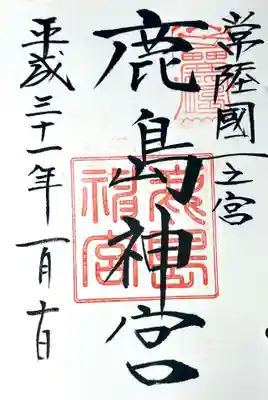 常陸國一之宮
鹿島神宮
鹿島神宮
平成三十一年一月十日